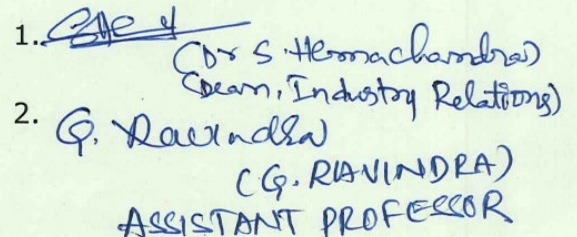 1.
(Dr S. Hemachandra)
(Dean, Industry Relations)
2. G. Ravindra
(G. RAVINDRA)
ASSISTANT PROFESSOR